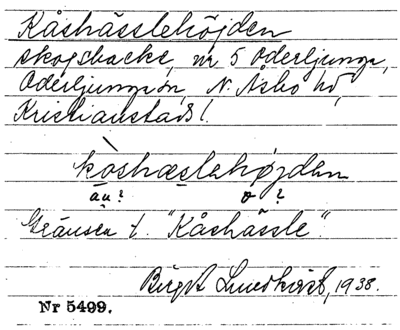 Kåshässlehöjden
skogsbacke, nr 5 Oderljunga,
Oderljunga sn, N. Åsbo hd,
Kristianstads l.
kòshæslehøjden
åu? ö ?
Gränsen t. "Kåshässle".
Birgit Lundkvist, 1938.
Nr 5499.